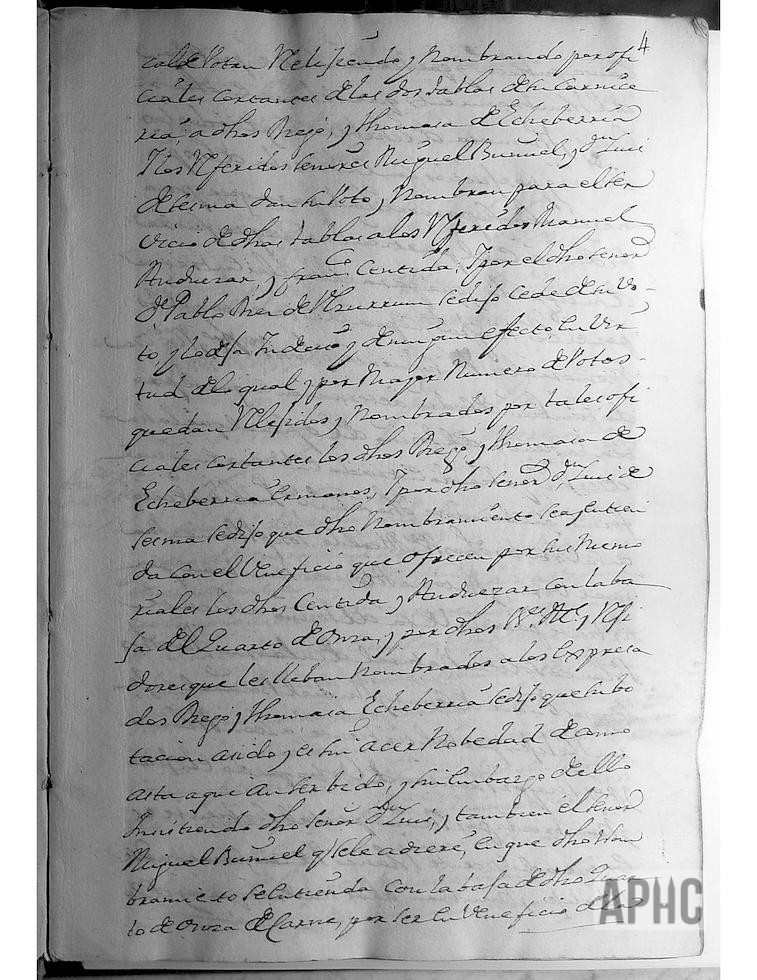 4
calde Votan Nelijiendo y Nombrando por ofi
ciales cortantes de las dos tablas de su Carnice
ria, a dhos Diego, y thomasa de Echeberria
Ylos Referidos señores Miguel Buñuel, y Dn Luis
de lesma dan su Voto, y Nombran para el ser
vicio de dhas tablas a los Referidos Manuel
Anduezar, y franco Centida, Y por el dho señor
Dn Pablo de se dijo cede de su Vo-
to, y lo deja y de ningun efecto, en Vir
tud de lo qual y por Mayor Numero de Votos-
quedan Nelejidos y Nombrados por tales ofi
ciales cortantes los dhos Diego, y thomasa de
Echeberria ermanos, Y por dho señor Dn Luis de
lesma se dijo que dho Nombramiento se a de entien
da con el Veneficio que ofrecen por sus memo
riales los dhos Centida y Anduezar con la ba
ja del Quarto de onza, y por dhos Rexi
dores que les lleban Nombrados a los Expresa
dos Diego y thomasa Echeberria se dijo que su bo
tacion a sido y es sin acer Nobedad de como
asta aqui an serbido, y sin embargo de ello
Insistiendo dho señor Dn Luis, y tambien el señor
Miguel Buñuel q se le adiere, en que dho Nom
bramieto se entienda con la baja de dho Quar
to de onza de Carne, por ser en Veneficio del
APHC